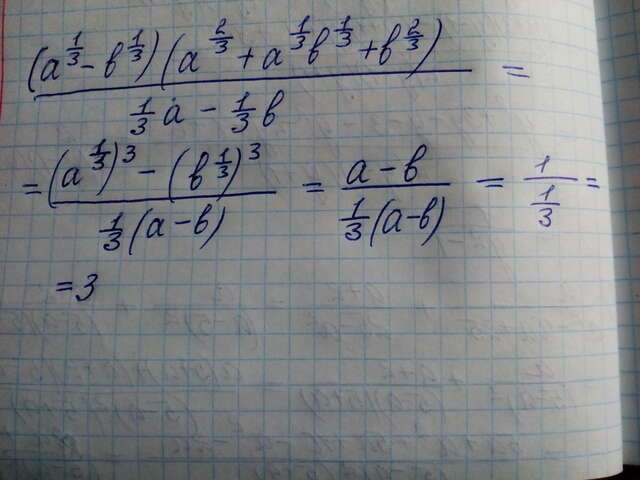 (a^{1/3} - в^{1/3})(a^{2/3} + a^{1/3}в^{1/3} + в^{2/3}) / (1/3 a - 1/3 в) =
= ((a^{1/3})^3 - (в^{1/3})^3) / (1/3 (a - в)) = (a - в) / (1/3 (a - в)) = 1 / (1/3) =
= 3